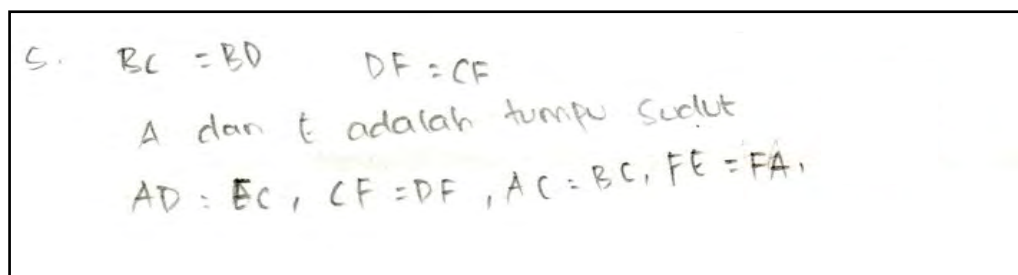 5. BC = BD DF = CF
A dan E adalah tumpu sudut
AD = EC, CF = DF, AC = BC, FE = FA,